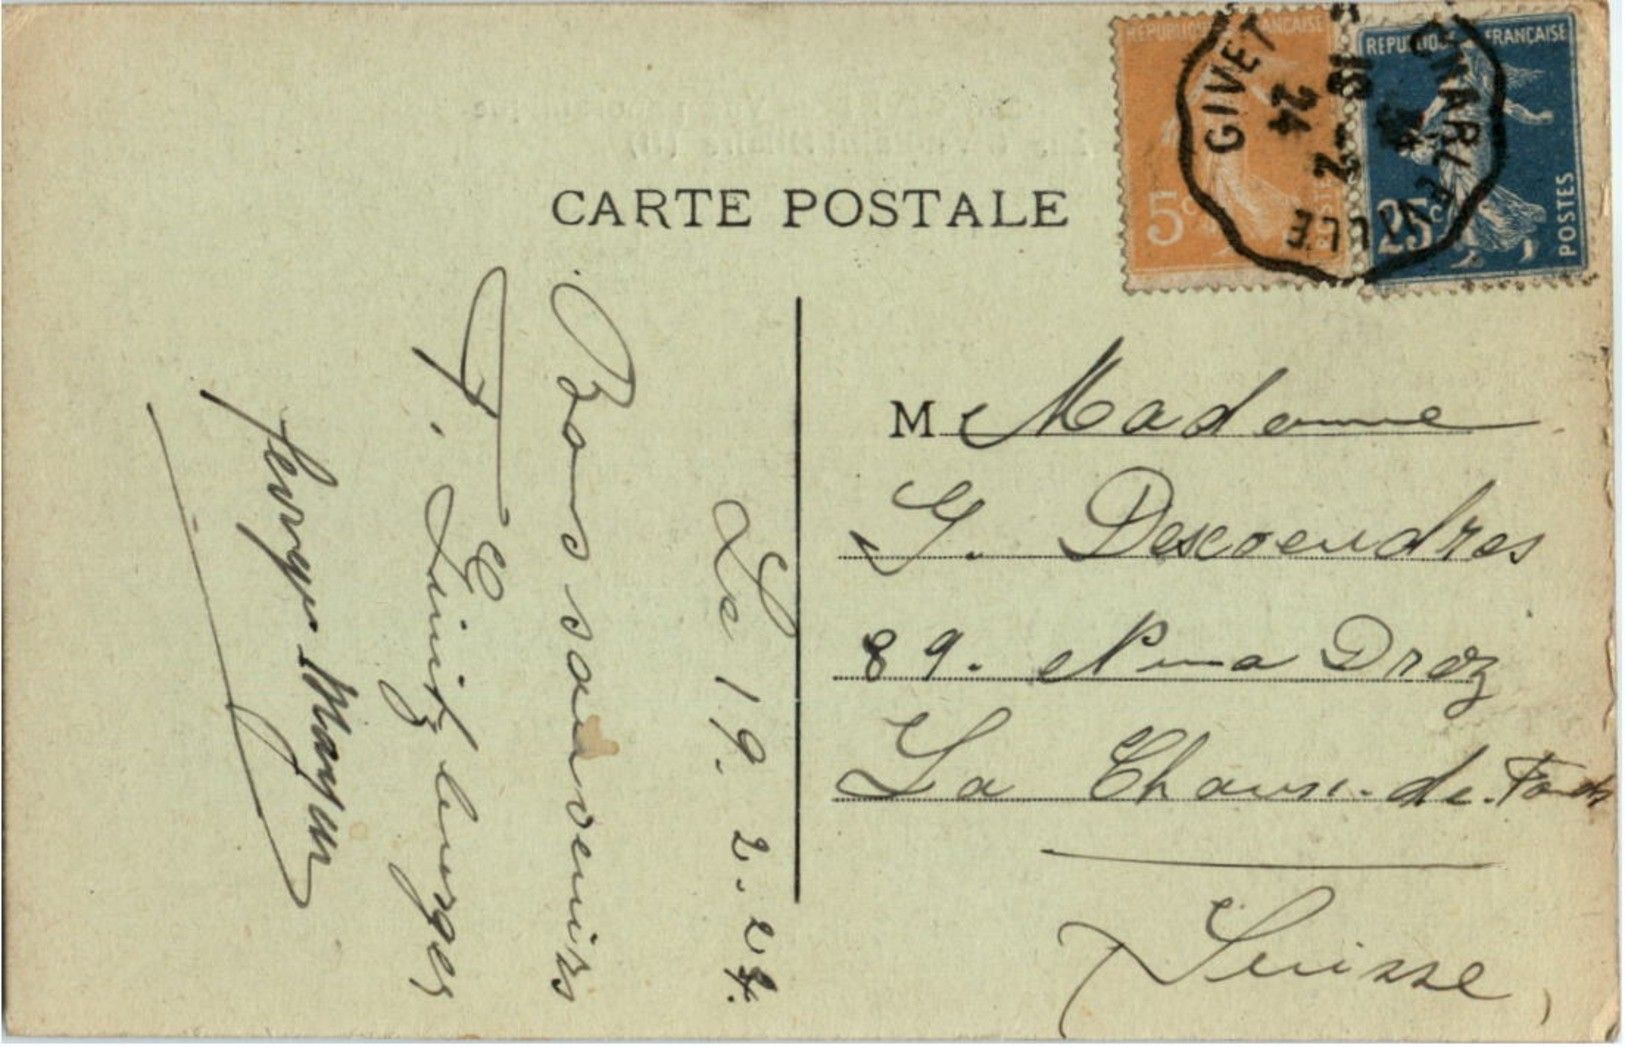 CARTE POSTALE
REPUBLIQUE FRANÇAISE
5c
POSTES
REPUBLIQUE FRANÇAISE
25c
POSTES
GIVET
CHARLEVILLE
19
-2
24
Le 19. 2. 24.
Bons souvenirs
M Madame
G. Descoeudres
89. Numa Droz
La Chaux-de-Fonds
Suisse